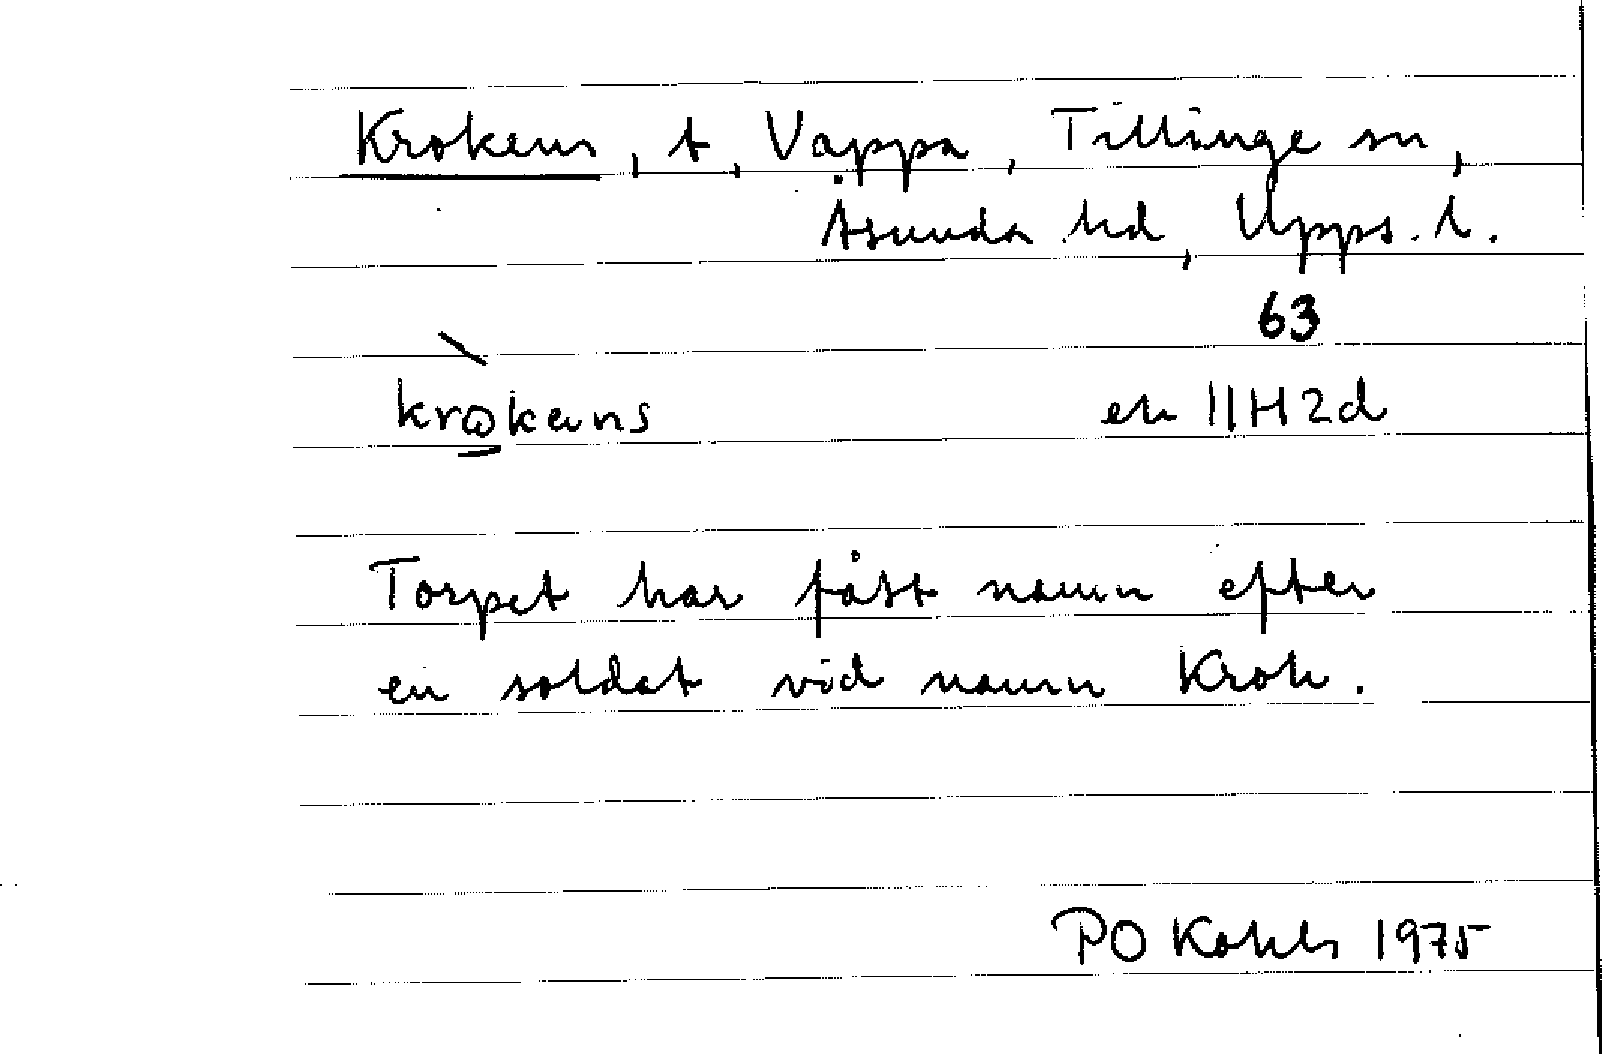 Krokens, t, Vappa, Tillinge sn,
Åsunda hd, Upps. l.
63
krωkens ek 11H2d
Torpet har fått namn efter
en soldat vid namn Krok.
PO Kahls 1975